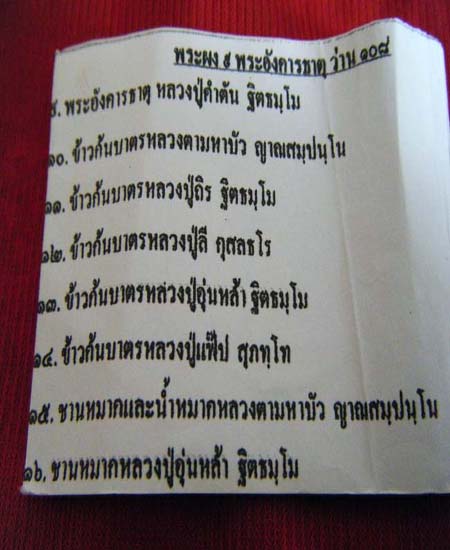 พระผง ๙ พระอังคารธาตุ ว่าน ๑๐๘
๙. พระอังคารธาตุ หลวงปู่คำตัน ฐิตธมฺโม
๑๐. ข้าวก้นบาตรหลวงตามหาบัว ญาณสมฺปนฺโน
๑๑. ข้าวก้นบาตรหลวงปู่ถิร ฐิตธมฺโม
๑๒. ข้าวก้นบาตรหลวงปู่ลี กุสลธโร
๑๓. ข้าวก้นบาตรหลวงปู่อุ่นหล้า ฐิตธมฺโม
๑๔. ข้าวก้นบาตรหลวงปู่แฟ๊ป สุภทฺโท
๑๕. ชานหมากและน้ำหมากหลวงตามหาบัว ญาณสมฺปนฺโน
๑๖. ชานหมากหลวงปู่อุ่นหล้า ฐิตธมฺโม